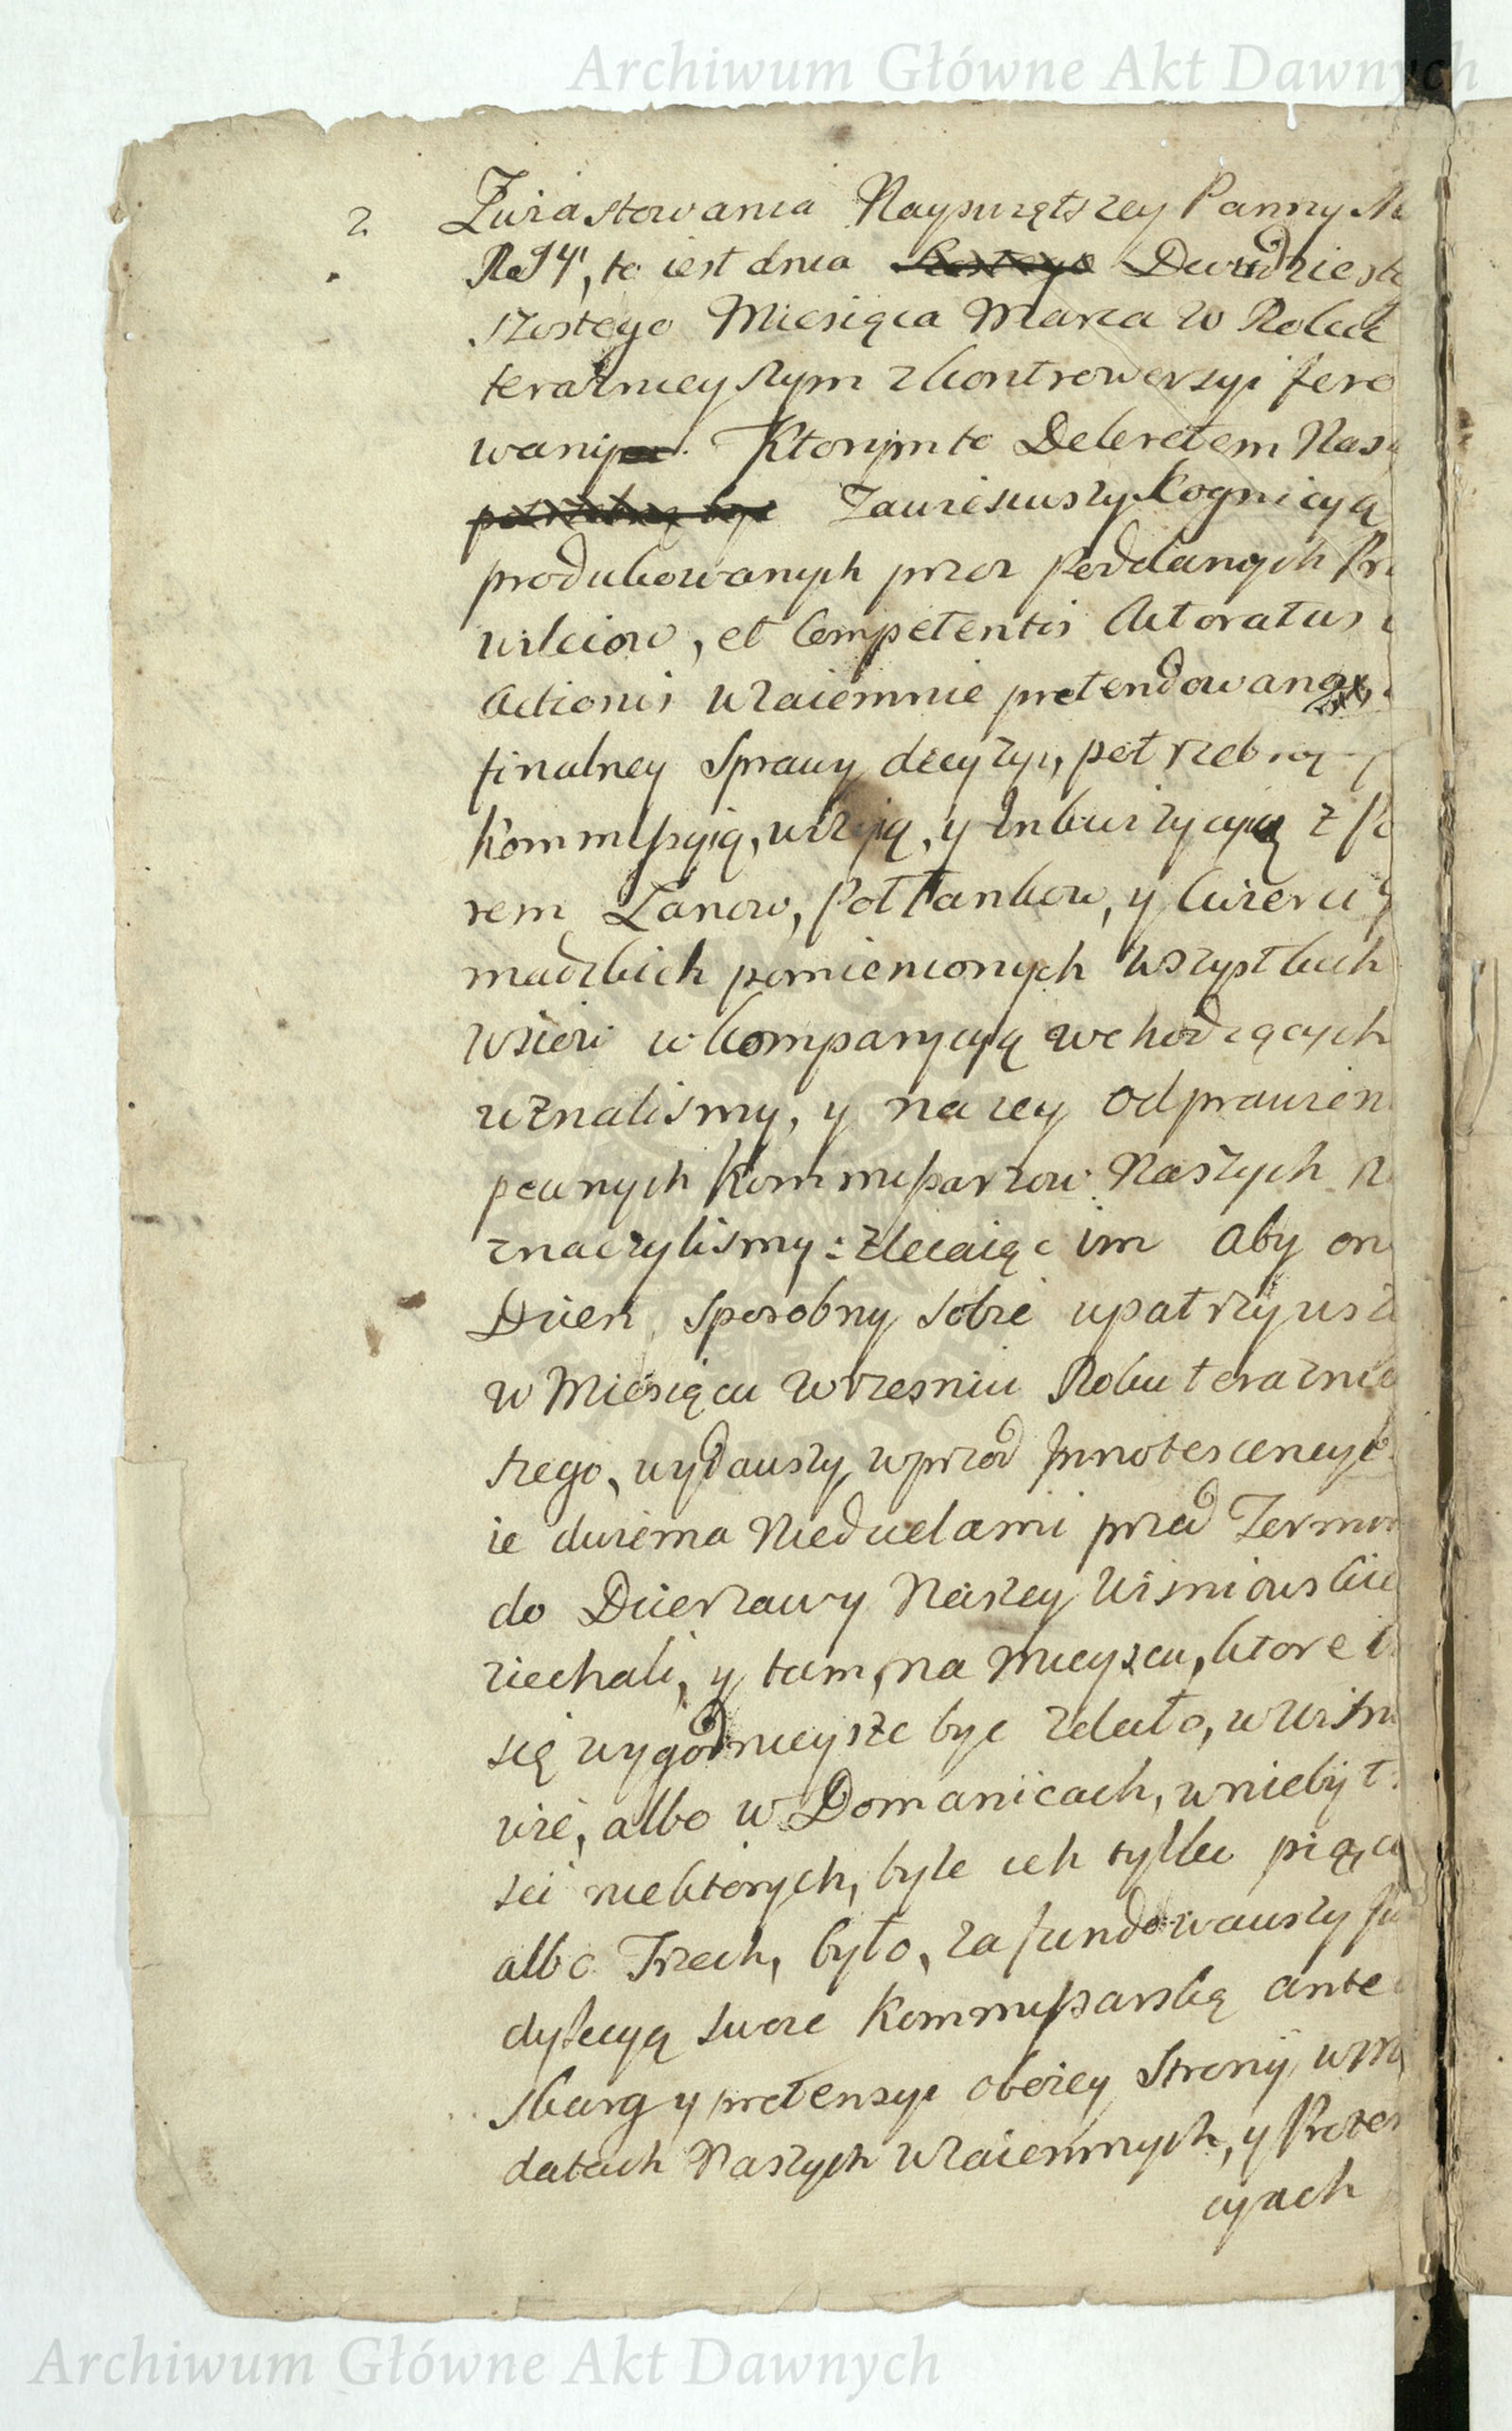 Archiwum Główne Akt Dawnych
2. Zwiastowania Nayswiętszey Panny
to iest dnia Dwudzieste
szostego Miesiąca Marca w Roku
teraznieyszym z kontrowersyi fero
wanym. Ktorymto Dekretem Nasz
Zawiesiwszy Kognicyą
produkowanych przez Poddanych Pri
wileiow, et Competentis Actoratus
Actionis wzaiemnie pretendowaną
finalney Sprawy decyzyi, potrzebną
Kommissyią, wizyią, y Inkwizycyią z
rem Łanow, Połłankow, y Cwierci
madzkich pomienionych wszystkich
wsiow w komparycyą wchodzących
uznalismy, y na iey odprawien
pewnych Kommissarzow Naszych
znaczylismy: zlecaiąc im aby on
Dzien sposobny sobie upatrzywsz
w Miesiącu Wrzesniu Roku teraznie
szego, wydawszy wprzod Innotescencye
ie dwiema Niedzielami przed Termin
do Dzierzawy Naszey Wisniowskie
ziechali, y tam, na mieyscu, ktore
się wygodnieysze byc zdało, w Wisni
wie, albo w Domanicach, w niebyt
sci niektorych, byle ich tylko pięciu
albo Trzech, było, zafundowawszy Ju
dykcyą swoie Kommissarską ante
skarg y pretensyi oboiey Strony, w Man
datach Naszych wzaiemnych, y Protes
cyach
Archiwum Główne Akt Dawnych